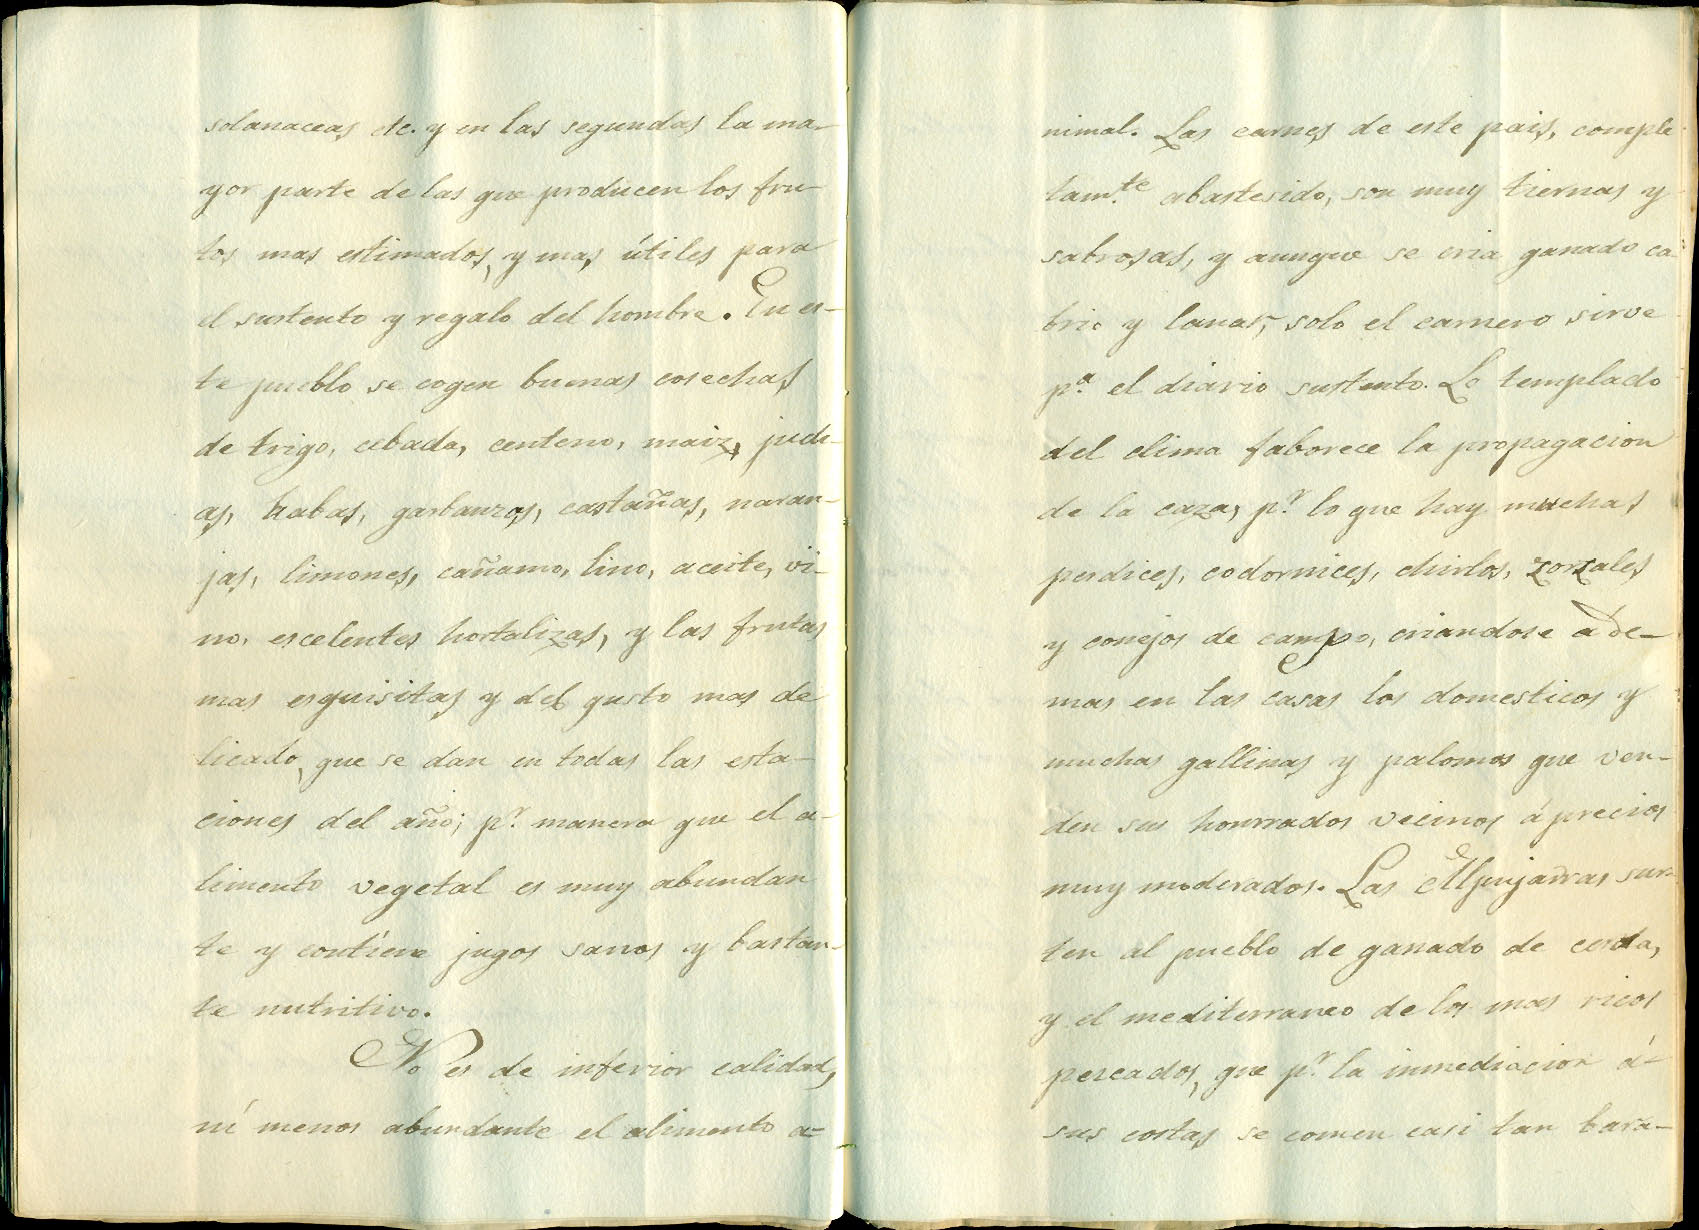 solanaceas, etc. y en las segundas la ma-
yor parte de las que producen los fru-
tos mas estimados, y mas útiles para
el sustento y regalo del hombre. En es-
te pueblo se cogen buenas cosechas
de trigo, cebada, centeno, maiz, judi-
as, habas, garbanzos, castañas, naran-
jas, limones, cañamo, lino, aceite, vi-
no, escelentes hortalizas, y las frutas
mas esquisitas y del gusto mas de
licado, que se dan en todas las esta-
ciones del año; pr. manera que el a-
limento vegetal es muy abundan
te y contiene jugos sanos y bastan-
te nutritivo.
No es de inferior calidad,
ní menos abundante el alimento a=
nimal. Las carnes de este pais, comple-
tam.te abastesido, son muy tiernas y
sabrosas, y aunque se cria ganado ca-
brio y lanar, solo el carnero sirve
p.a el diario sustento. Lo templado
del clima faborece la propagacion
de la caza, pr. lo que hay muchas
perdices, codornices, chirlos, zorzales
y conejos de campo, criandose ade-
mas en las casas los domesticos y
muchas gallinas y palomos que ven-
den sus honrrados vecinos á precios
muy moderados. Las Alpujarras sur-
ten al pueblo de ganado de cerda,
y el mediterraneo de los mas ricos
pescados, que pr. la inmediacion á-
sus costas se comen casi tan bara-